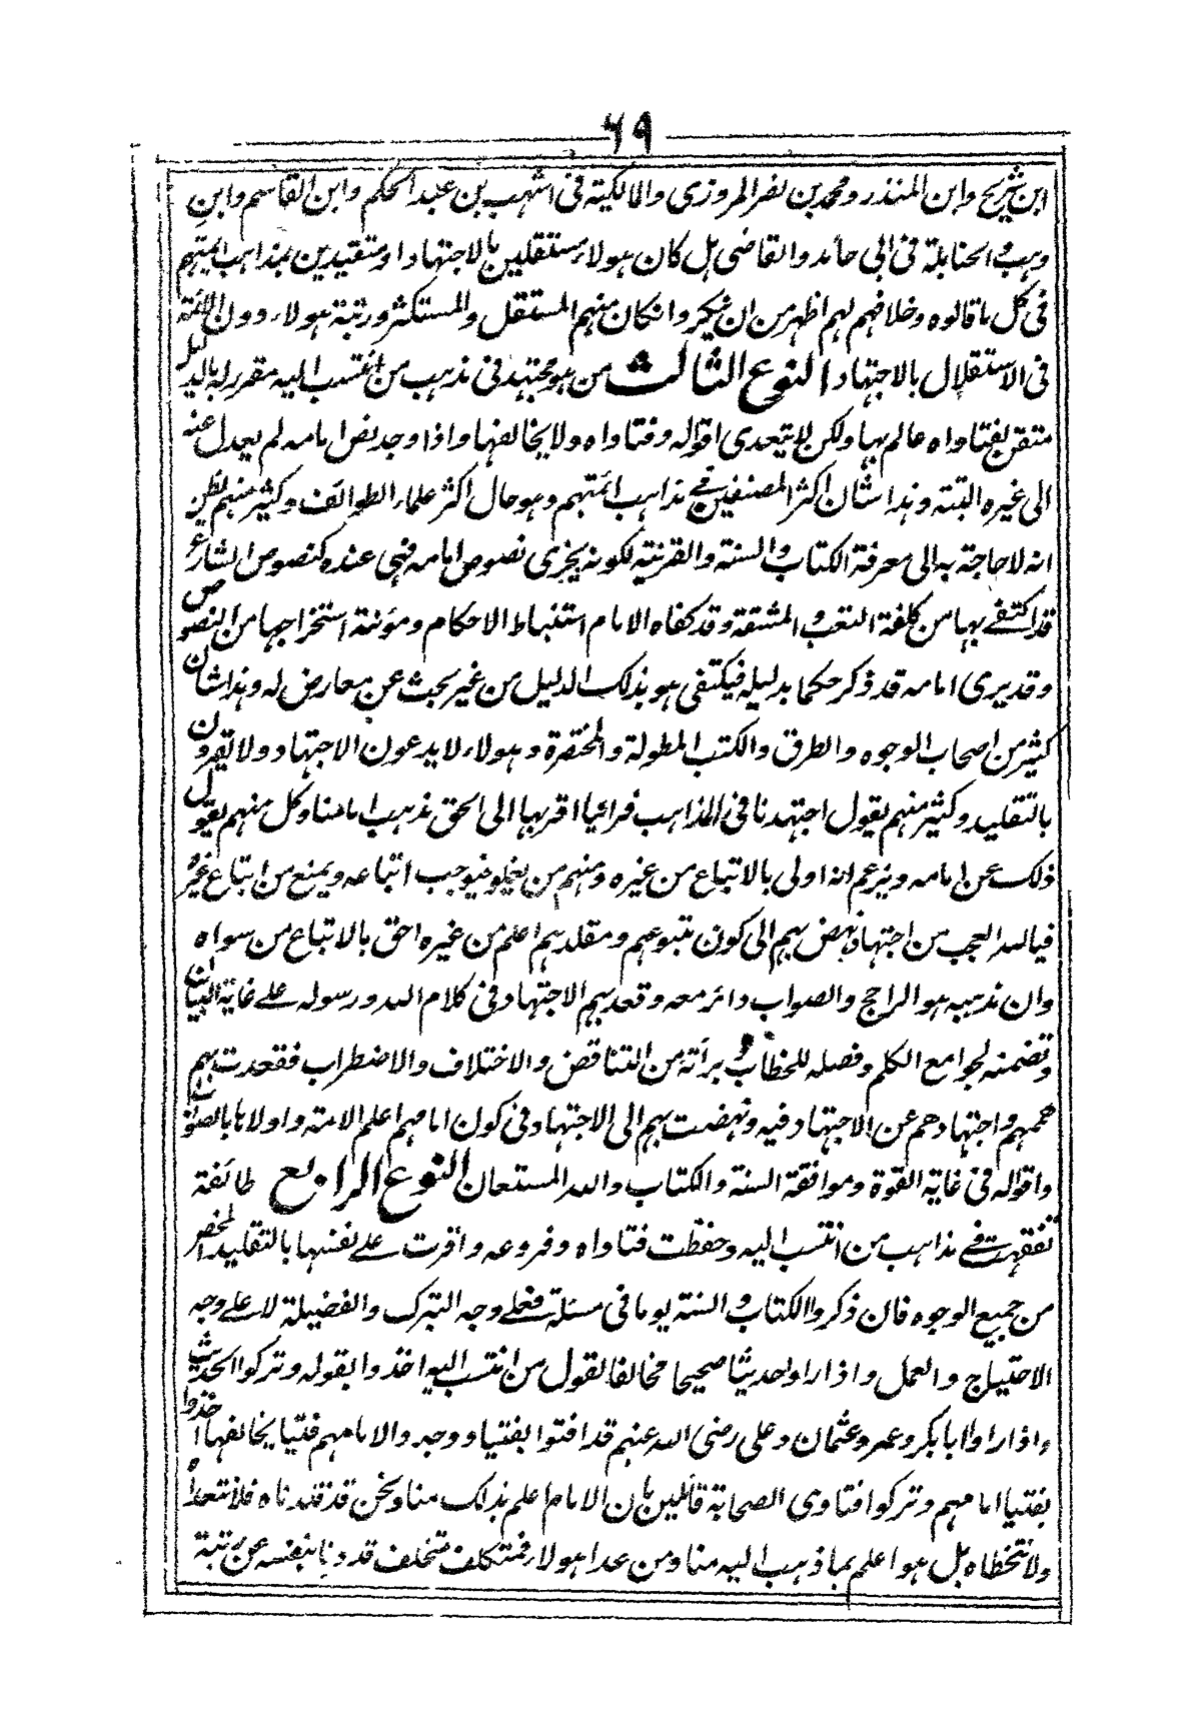 ٦٩
ابن شريح وابن المنذر ومحمد بن نصر المروزى والمالكية فى اشهب بن عبد الحكم وابن القاسم وابن
وهب والحنابلة فى ابى حامد والقاضى هل كان هولاء مستقلين بالاجتهاد او متقيدين بمذاهب ائمتهم
فى كل ما قالوه وخلافهم لهم اظهر من ان ينكر وانكان منهم المستقل والمستكثر ورتبة هولاء دون الائمة
فى الاستقلال بالاجتهاد النوع الثالث من هو مجتهد فى مذهب من انتسب اليه مقرر له بالدليل
متقن لفتاواه عالم بها ولكن لا يتعدى اقواله وفتاواه ولا يخالفها واذا وجد نص امامه لم يعدل عنه
الى غيره البتة وهذا شان اكثر المصنفين فى مذاهب ائمتهم وهو حال اكثر علماء الطوائف وكثير منهم يظن
انه لا حاجة به الى معرفة الكتاب والسنة والقرنية لكونه يجزى نصوص امامه فهى عنده كنصوص الشارع
قد اكتفى بها من كلفة التعب والمشقة وقد كفاه الامام استنباط الاحكام ومؤنة استخراجها من النصوص
وقد يرى امامه قد ذكر حكما بدليله فيكتفى هو بذلك الدليل من غير بحث عن معارض له وهذا شان
كثير من اصحاب الوجوه والطرق والكتب المطولة والمختصرة وهولاء لا يدعون الاجتهاد ولا يقرون
بالتقليد وكثير منهم يقول اجتهدنا فى المذاهب فرائينا اقربها الى الحق مذهب امامنا وكل منهم يقول
ذلك عن امامه ويزعم انه اولى بالاتباع من غيره ومنهم من يغلو فيوجب اتباعه ويمنع من اتباع غيره
فيا لله العجب من اجتهاد نهض بهم الى كون متبوعهم ومقلدهم اعلم من غيره احق بالاتباع من سواه
وان مذهبه هو الراجح والصواب دائر معه وقعد بهم الاجتهاد فى كلام الله ورسوله على غاية البيان
وتضمنه لجوامع الكلم وفصله للخطاب وبرأته من التناقض والاختلاف والاضطراب فقعدت بهم
هممهم واجتهادهم عن الاجتهاد فيه ونهضت بهم الى الاجتهاد فى كون امامهم اعلم الامة واولاها بالصواب
واقواله فى غاية القوة وموافقة السنة والكتاب والله المستعان النوع الرابع طائفة
تفقهت فى مذاهب من انتسب اليه وحفظت فتاواه وفروعه واقرت على نفسها بالتقليد المحض
من جميع الوجوه فان ذكروا الكتاب والسنة يوما فى مسئلة فعلى وجه التبرك والفضيلة لا على وجه
الاحتياج والعمل واذا راوا حديثا صحيحا مخالفا لقول من انتسب اليه اخذوا بقوله وتركوا الحديث
واذا راوا ابا بكر وعمر وعثمان وعلى رضى الله عنهم قد افتوا بفتيا ووجدوا لامامهم فتيا يخالفها اخذوا
بفتيا امامهم وتركوا فتاوى الصحابة قائلين بان الامام اعلم بذلك منا ونحن قد قلدناه فلا نتعداه
ولا نتخطاه بل هو اعلم بما ذهب اليه منا ومن عدا هولاء فمتكلف متخلف قد دنا بنفسه عن رتبة